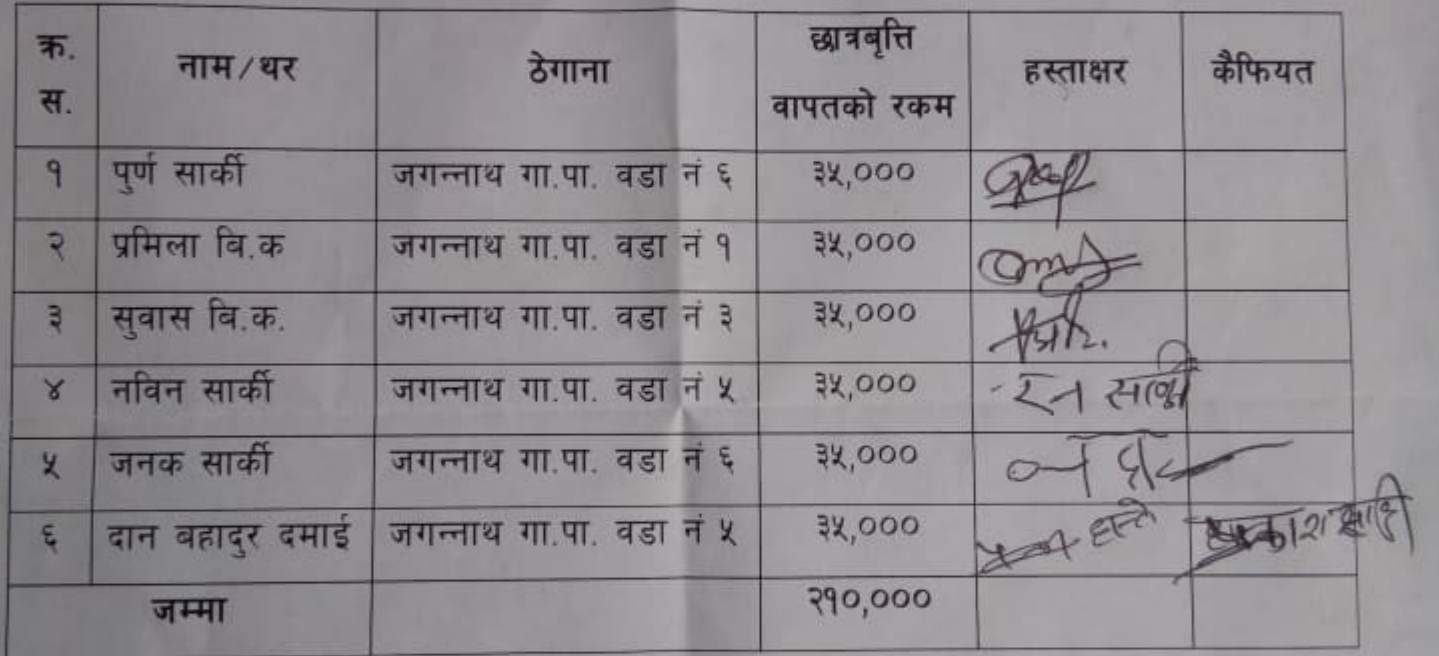 क्र. स. नाम/थर ठेगाना छात्रबृत्ति वापतको रकम हस्ताक्षर कैफियत
१ पुर्ण सार्की जगन्नाथ गा.पा. वडा नं ६ ३५,०००
२ प्रमिला वि.क जगन्नाथ गा.पा. वडा नं १ ३५,०००
३ सुवास वि.क. जगन्नाथ गा.पा. वडा नं ३ ३५,०००
४ नविन सार्की जगन्नाथ गा.पा. वडा नं ५ ३५,०००
५ जनक सार्की जगन्नाथ गा.पा. वडा नं ६ ३५,०००
६ दान बहादुर दमाई जगन्नाथ गा.पा. वडा नं ५ ३५,०००
जम्मा २१०,०००